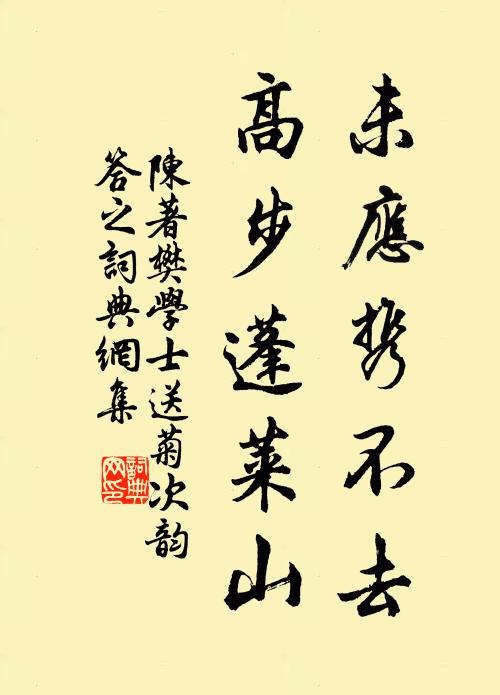 未應携不去
高步蓬萊山
陳著樊學士送菊次韵
答之詞典網集
詞典網印